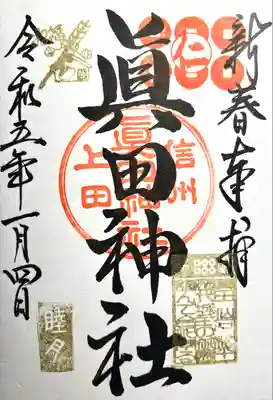 新春奉拝
眞田神社
信州
上田
眞田神社
令和五年一月四日
睦月